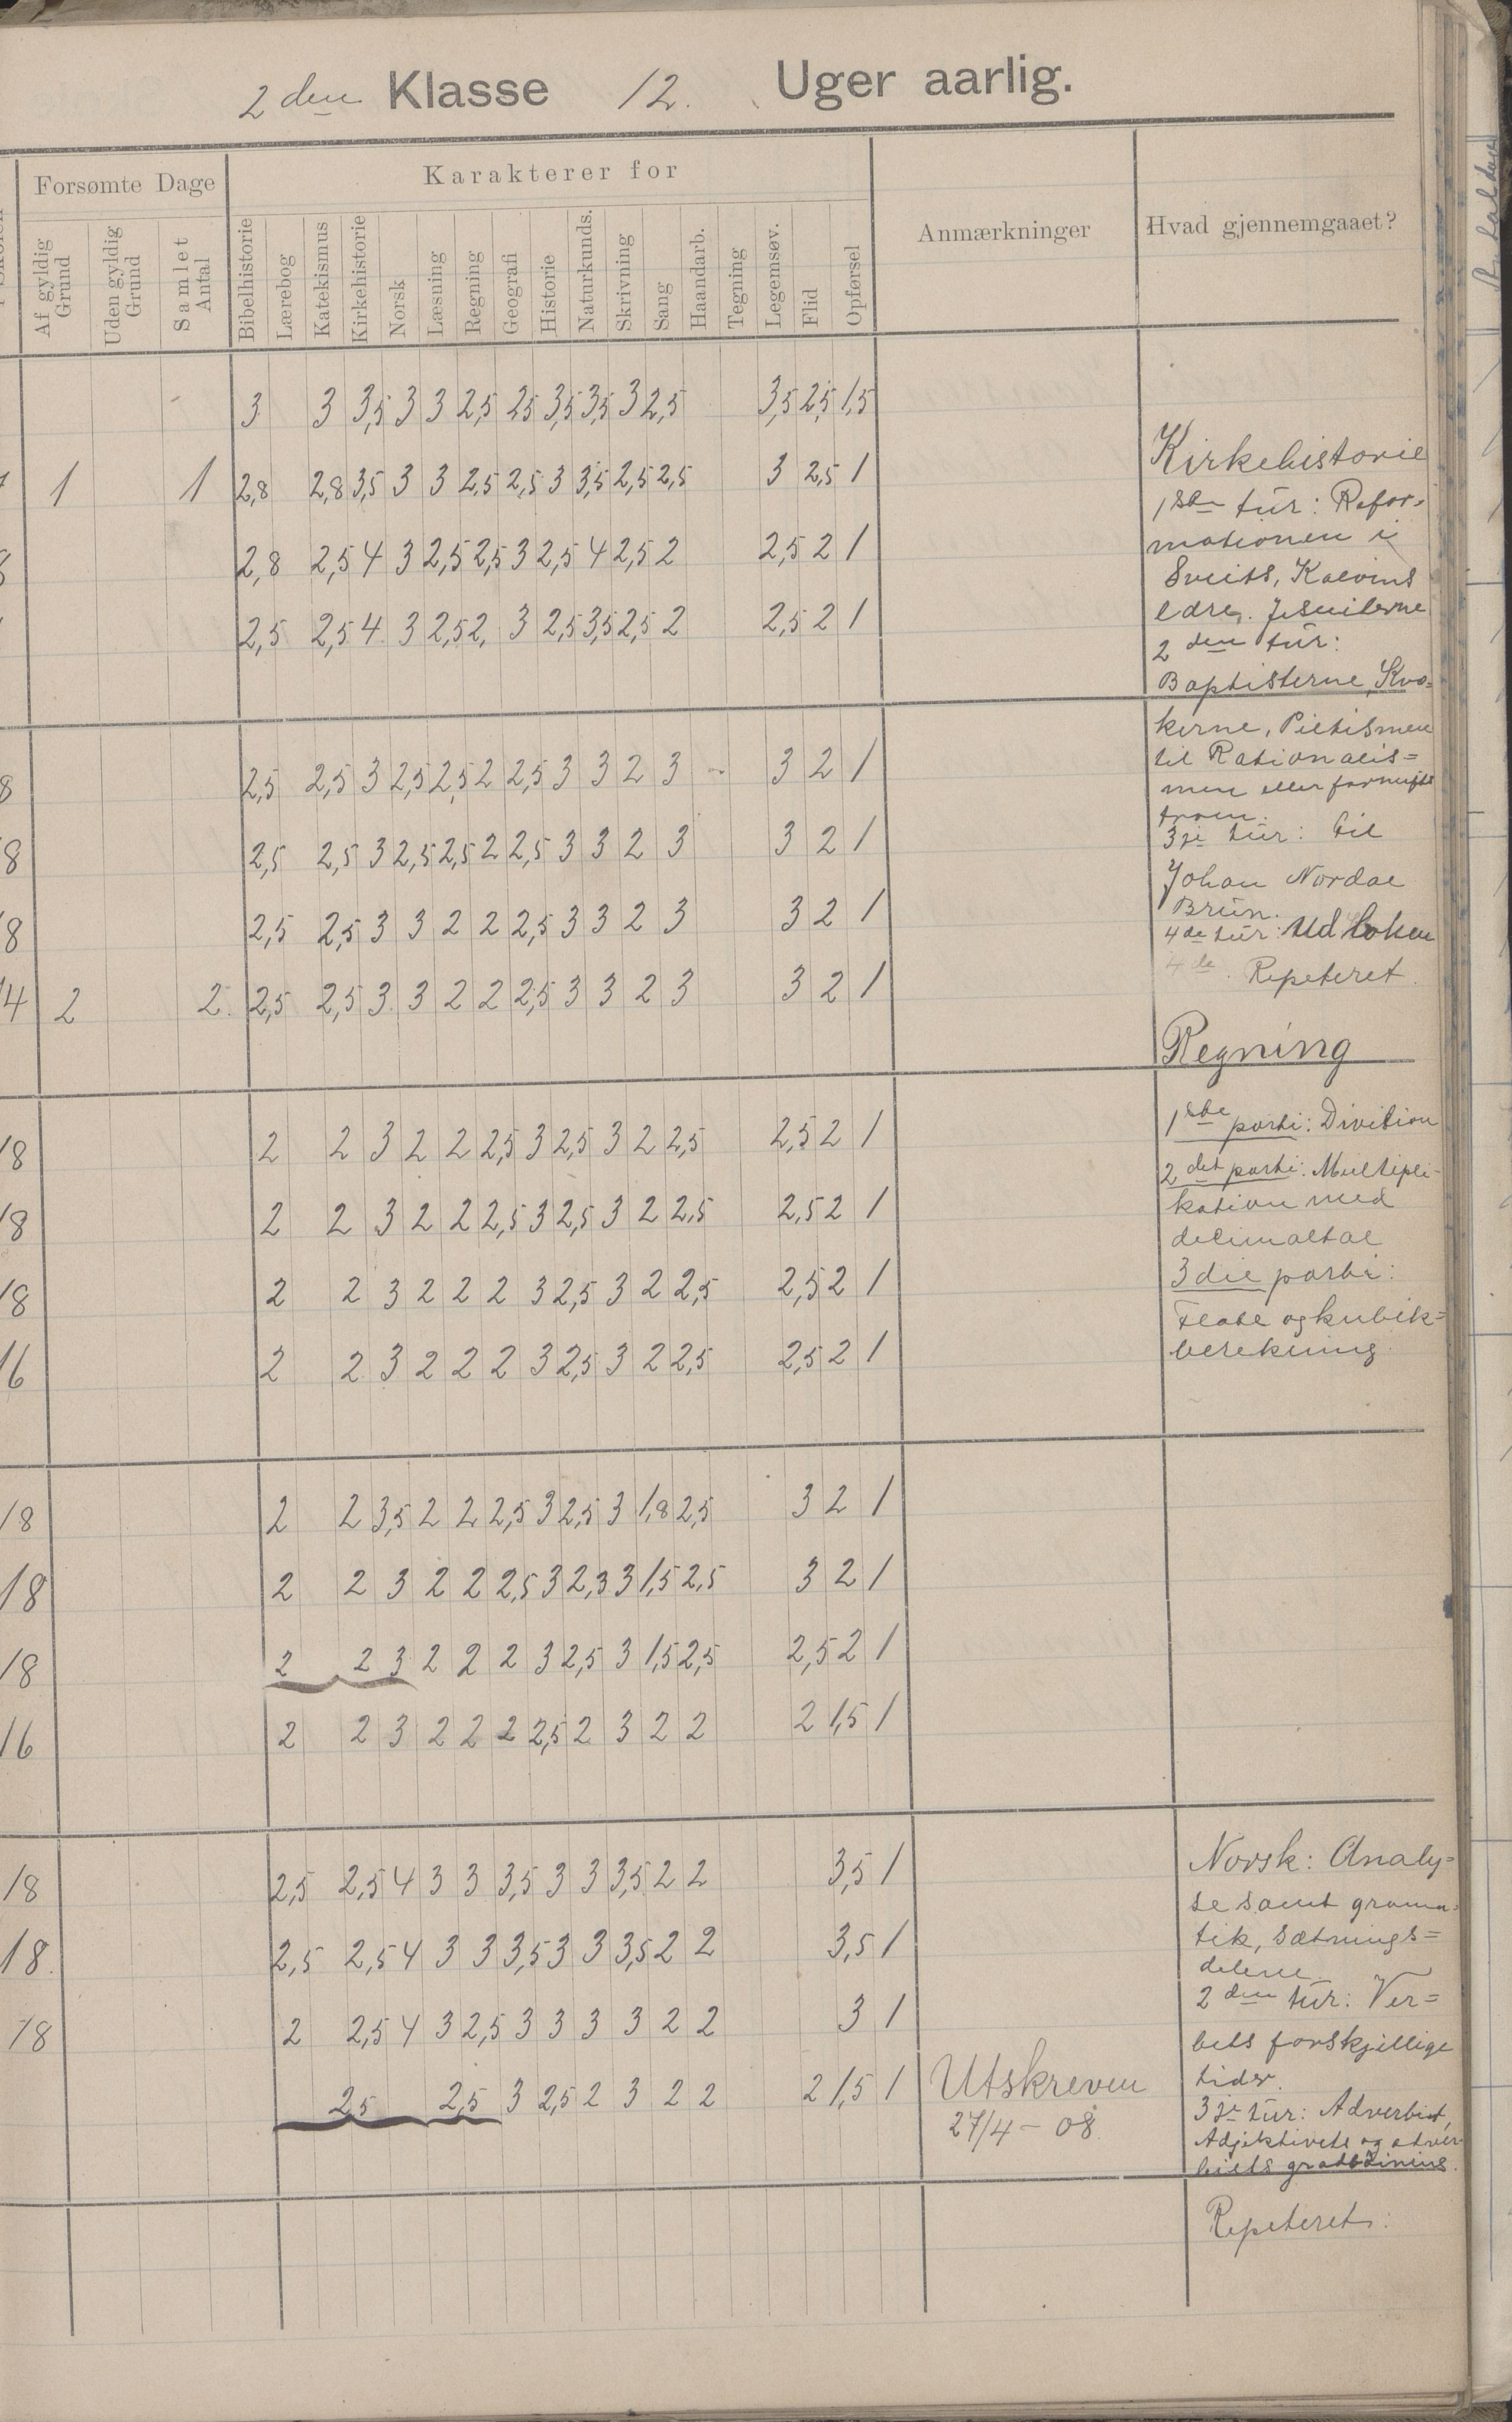 2den Klasse 12. Uger aarlig.
Forsømte Dage
Karakterer for
Anmærkninger
Hvad gjennemgaaet?
Af gyldig Grund
Uden gyldig Grund
Samlet Antal
Bibelhistorie
Lærebog
Katekismus
Kirkehistorie
Norsk
Læsning
Regning
Geografi
Historie
Naturkunds.
Skrivning
Sang
Haandarb.
Tegning
Legemsøv.
Flid
Opførsel
3 3 3,5 3 3 2,5 2,5 3,5 3,5 3 2,5 3,5 2,5 1,5
1 1 2,8 2,8 3,5 3 3 2,5 2,5 3 3,5 2,5 2,5 3 2,5 1
2,8 2,5 4 3 2,5 2,5 3 2,5 4 2,5 2 2,5 2 1
2,5 2,5 4 3 2,5 2, 3 2,5 3,5 2,5 2 2,5 2 1
8 2,5 2,5 3 2,5 2,5 2 2,5 3 3 2 3 3 2 1
8 2,5 2,5 3 2,5 2,5 2 2,5 3 3 2 3 3 2 1
8 2,5 2,5 3 3 2 2 2,5 3 3 2 3 3 2 1
14 2 2. 2,5 2,5 3 3 2 2 2,5 3 3 2 3 3 2 1
18 2 2 3 2 2 2,5 3 2,5 3 2 2,5 2,5 2 1
18 2 2 3 2 2 2,5 3 2,5 3 2 2,5 2,5 2 1
18 2 2 3 2 2 2 3 2,5 3 2 2,5 2,5 2 1
16 2 2 3 2 2 2 3 2,5 3 2 2,5 2,5 2 1
18 2 2 3,5 2 2 2,5 3 2,5 3 1,8 2,5 3 2 1
18 2 2 3 2 2 2,5 3 2,3 3 1,5 2,5 3 2 1
18 2 2 3 2 2 2 3 2,5 3 1,5 2,5 2,5 2 1
16 2 2 3 2 2 2 2,5 2 3 2 2 2 1,5 1
18 2,5 2,5 4 3 3 3,5 3 3 3,5 2 2 3,5 1
18. 2,5 2,5 4 3 3 3,5 3 3 3,5 2 2 3,5 1
18 2 2,5 4 3 2,5 3 3 3 3 2 2 3 1
2,5 2,5 3 2,5 2 3 2 2 2 1,5 1
Utskreven
27/4 - 08.
Kirkehistorie
1ste tur: Refor-
mationen i
Sveits, Kalvins
lære. Jesuiterne
2den tur:
Baptisterne, Kvæ-
kerne, Pietismen
til Rationalis=
men eller fornufts
troen.
3je tur: til
Johan Nordal
Brun.
4de tur: Ud boken
4de. Repeteret.
Regning
1ste parti: Divition
2det parti: Multipli-
kation med
decimaltal
3die parti:
Flate og kubik=
berekning.
Norsk: Analy=
se samt gramma-
tik, Sætnings=
delene
2den tur: Ver=
bets forskjellige
tider.
3je tur: Adverbiet,
Adjektivets og adver-
biets gradbøining.
Repeteret.